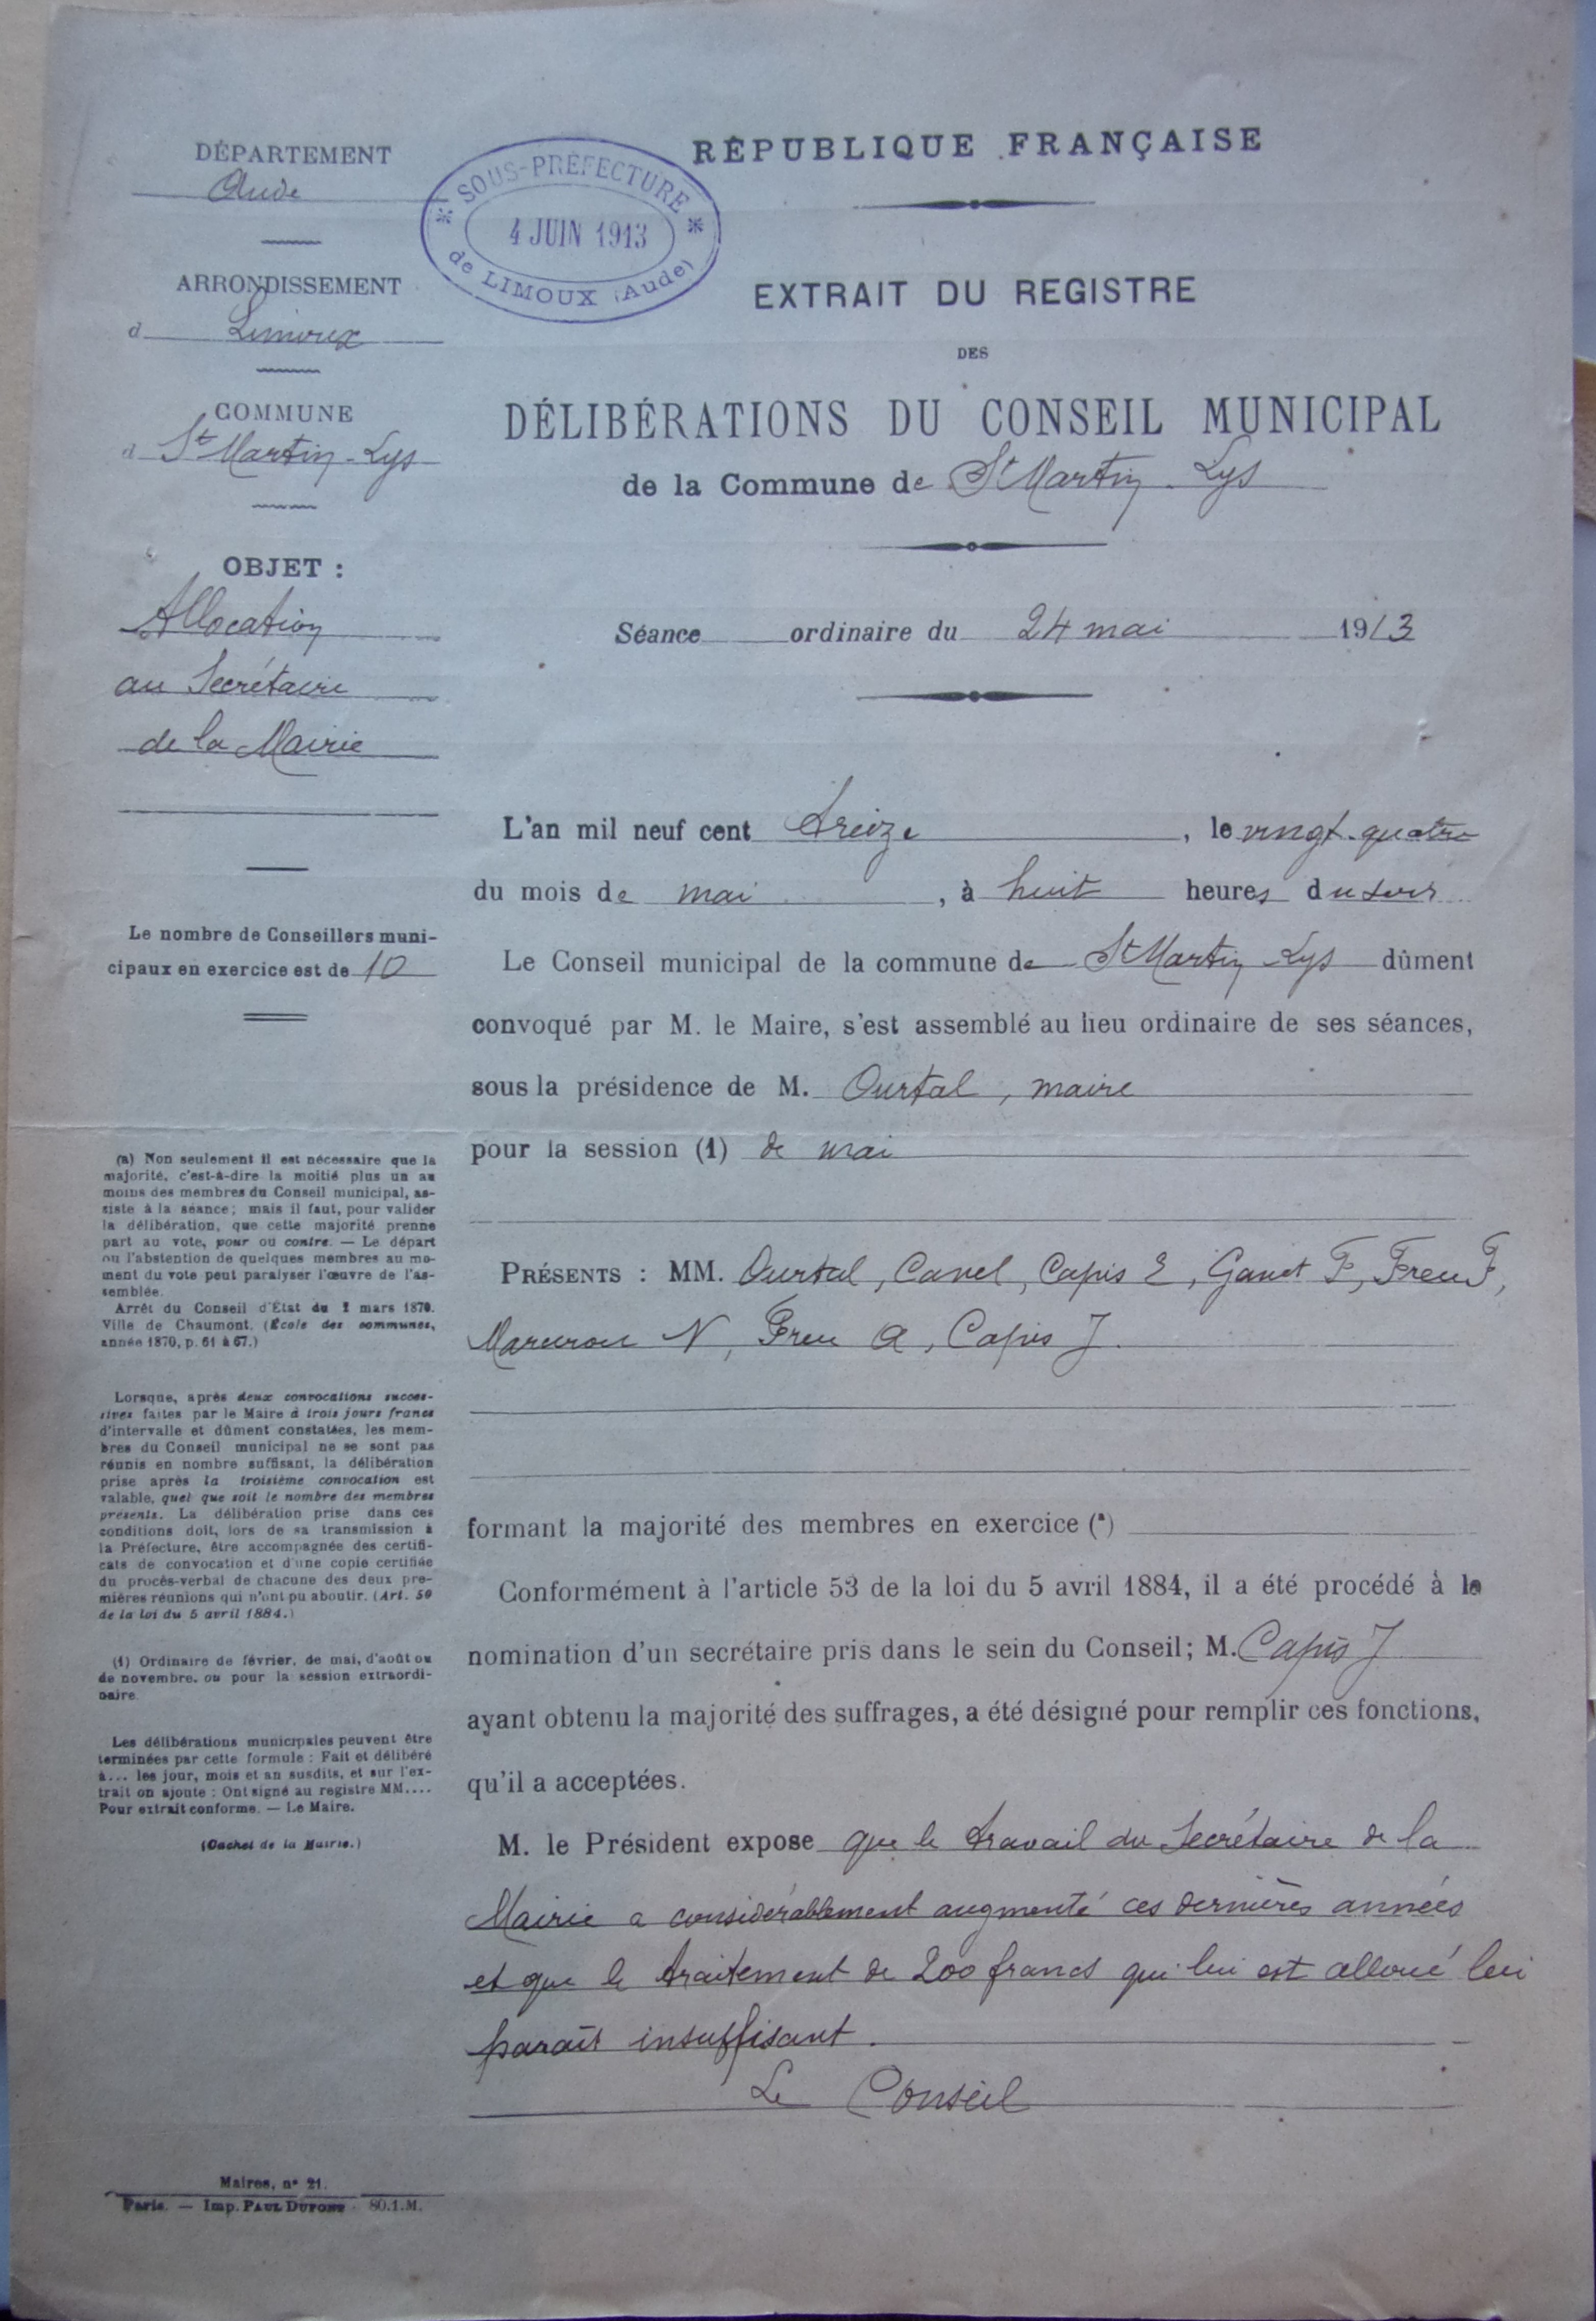 DÉPARTEMENT
Aude
ARRONDISSEMENT
d Limoux
COMMUNE
d St Martin-Lys
OBJET :
Allocation
au Secrétaire
de la Mairie
Le nombre de Conseillers muni-
cipaux en exercice est de 10
(a) Non seulement il est nécessaire que la
majorité, c'est-à-dire la moitié plus un au
moins des membres du Conseil municipal, as-
siste à la séance; mais il faut, pour valider
la délibération, que cette majorité prenne
part au vote, pour ou contre. — Le départ
ou l'abstention de quelques membres au mo-
ment du vote peut paralyser l'œuvre de l'as-
semblée.
Arrêt du Conseil d'État du mars 1870.
Ville de Chaumont. (École des communes,
année 1870, p. 61 à 67.)
Lorsque, après deux convocations succes-
sives faites par le Maire à trois jours francs
d'intervalle et dûment constatées, les mem-
bres du Conseil municipal ne se sont pas
réunis en nombre suffisant, la délibération
prise après la troisième convocation est
valable, quel que soit le nombre des membres
présents. La délibération prise dans ces
conditions doit, lors de sa transmission à
la Préfecture, être accompagnée des certifi-
cats de convocation et d'une copie certifiée
du procès-verbal de chacune des deux pre-
mières réunions qui n'ont pu aboutir. (Art. 50
de la loi du 5 avril 1884.)
(1) Ordinaire de février, de mai, d'août ou
de novembre, ou pour la session extraordi-
naire.
Les délibérations municipales peuvent être
terminées par cette formule : Fait et délibéré
à... les jour, mois et an susdits, et sur l'ex-
trait on ajoute : Ont signé au registre MM....
Pour extrait conforme. — Le Maire.
(Cachet de la Mairie.)
Maires, n° 21.
Paris. — Imp. PAUL DUPONT 80.1.M.
* SOUS-PRÉFECTURE *
4 JUIN 1913
de LIMOUX (Aude)
RÉPUBLIQUE FRANÇAISE
EXTRAIT DU REGISTRE
DES
DÉLIBÉRATIONS DU CONSEIL MUNICIPAL
de la Commune de St Martin-Lys
Séance ordinaire du 24 mai 1913
L'an mil neuf cent treize, le vingt-quatre
du mois de mai, à huit heures du soir
Le Conseil municipal de la commune de St Martin-Lys dûment
convoqué par M. le Maire, s'est assemblé au lieu ordinaire de ses séances,
sous la présidence de M. Ourtal, maire
pour la session (1) de mai
PRÉSENTS : MM. Ourtal, Canel, Capis E, Ganet F, Freu F,
N, Freu A, Capis J.
formant la majorité des membres en exercice (a)
Conformément à l'article 53 de la loi du 5 avril 1884, il a été procédé à la
nomination d'un secrétaire pris dans le sein du Conseil; M. Capis J
ayant obtenu la majorité des suffrages, a été désigné pour remplir ces fonctions,
qu'il a acceptées.
M. le Président expose que le travail du Secrétaire de la
Mairie a considérablement augmenté ces dernières années
et que le traitement de 200 francs qui lui est alloué lui
paraît insuffisant.
Le Conseil